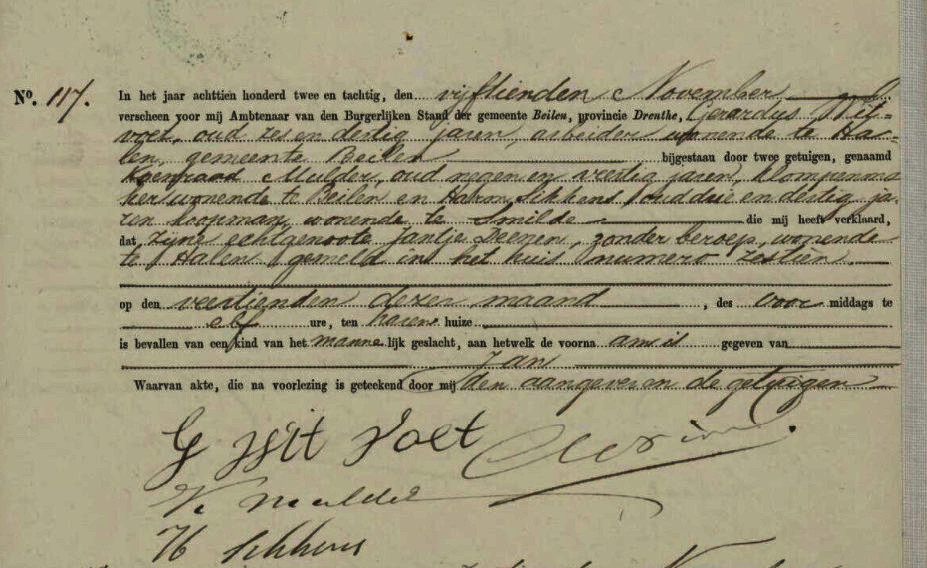 No. 117. In het jaar achttien honderd twee en tachtig, den vijftienden November
verscheen voor mij Ambtenaar van den Burgerlijken Stand der gemeente Beilen, provincie Drenthe, Gerardus Wit-
voet, oud zes en dertig jaren, arbeider wonende te Ha-
len, gemeente Beilen bijgestaan door twee getuigen, genaamd
Koenraad Mulder, oud negen en veertig jaren, klompenma
ker wonende te Beilen en Harm Sikkens, oud drie en dertig ja-
ren koopman, wonende te Smilde die mij heeft verklaard,
dat zijne echtgenoote Jantje Deenen, zonder beroep, wonende
te Halen gemeld in het huis numero zestien
op den veertienden dezer maand, des voor middags te
elf ure, ten haren huize
is bevallen van een kind van het manne lijk geslacht, aan hetwelk de voorna am is gegeven van
Jan
Waarvan akte, die na voorlezing is geteekend door mij den aangever en de getuigen
G Wit Voet
K. Mulder
H Sikkens